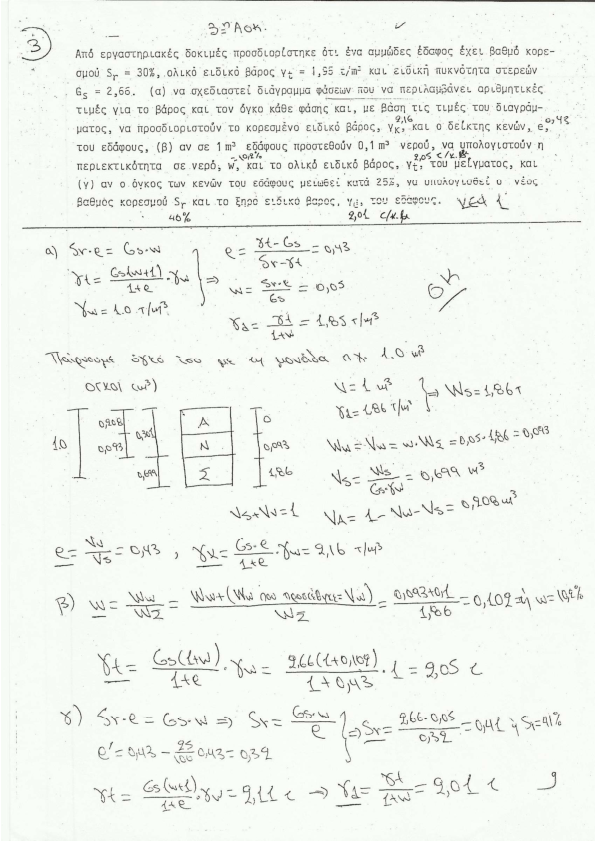 3
3η Ασκ.
Από εργαστηριακές δοκιμές προσδιορίστηκε ότι ένα αμμώδες έδαφος έχει βαθμό κορε-
σμού Sr = 30%, ολικό ειδικό βάρος γt = 1,95 t/m³ και ειδική πυκνότητα στερεών
Gs = 2,66. (α) να σχεδιαστεί διάγραμμα φάσεων που να περιλαμβάνει αριθμητικές
τιμές για το βάρος και τον όγκο κάθε φάσης και, με βάση τις τιμές του διαγράμ-
ματος, να προσδιοριστούν το κορεσμένο ειδικό βάρος, γκ, και ο δείκτης κενών, e,
2,16 0,43
του εδάφους, (β) αν σε 1 m³ εδάφους προστεθούν 0,1 m³ νερού, να υπολογιστούν η
περιεκτικότητα σε νερό, w, και το ολικό ειδικό βάρος, γt, του μείγματος, και
10,2% 2,05
(γ) αν ο όγκος των κενών του εδάφους μειωθεί κατά 25%, να υπολογισθεί ο νέος
βαθμός κορεσμού Sr και το ξηρό ειδικό βάρος, γd, του εδάφους.
40% 2,01
α) Sr·e = Gs·w
γt = Gs(w+1)/1+e · γw
γw = 1.0 T/μ³
⇒ e = γt-Gs/Sr-γt = 0,43
w = Sr·e/Gs = 0,05
γd = γt/1+w = 1,85 T/μ³
OK
Παίρνουμε όγκο του με τη μονάδα πχ. 1.0 μ³
ΟΓΚΟΙ (μ³)
1.0
0,208
0,093
0,301
0,699
Α
Ν
Σ
0
0,093
1,86
V = 1 μ³
γd = 1.86 T/μ³
⇒ Ws = 1,86 T
Ww = Vw = w·WΣ = 0,05·1,86 = 0,093
Vs = Ws/Gs·γw = 0,699 μ³
Vs+Vv=1
VA = 1-Vw-Vs = 0,208 μ³
e = Vv/Vs = 0,43 , γκ = Gs·e/1+e · γw = 2,16 T/μ³
β) w = Ww/WΣ = Ww+(Ww που προσέθηκε=Vw)/WΣ = 0,093+0,1/1,86 = 0,102 ή w=10,2%
γt = Gs(1+w)/1+e · γw = 2,66(1+0,102)/1+0,43 · 1 = 2,05 τ
γ) Sr·e = Gs·w ⇒ Sr = Gs·w/e
e' = 0,43 - 25/100 0,43 = 0,32
⇒ Sr = 2,66·0,05/0,32 = 0,41 ή Sr=41%
γt = Gs(w+1)/1+e · γw = 2,11 τ → γd = γt/1+w = 2,01 τ
9